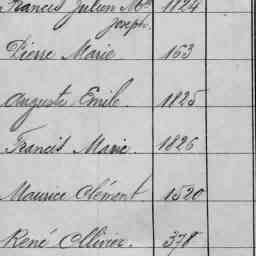 Francis Julien Mie 1824
Joseph.
Pierre Marie 163
Auguste Emile. 1825
Francis Marie. 1826
Maurice Clément. 1520
René Ollivier. 378